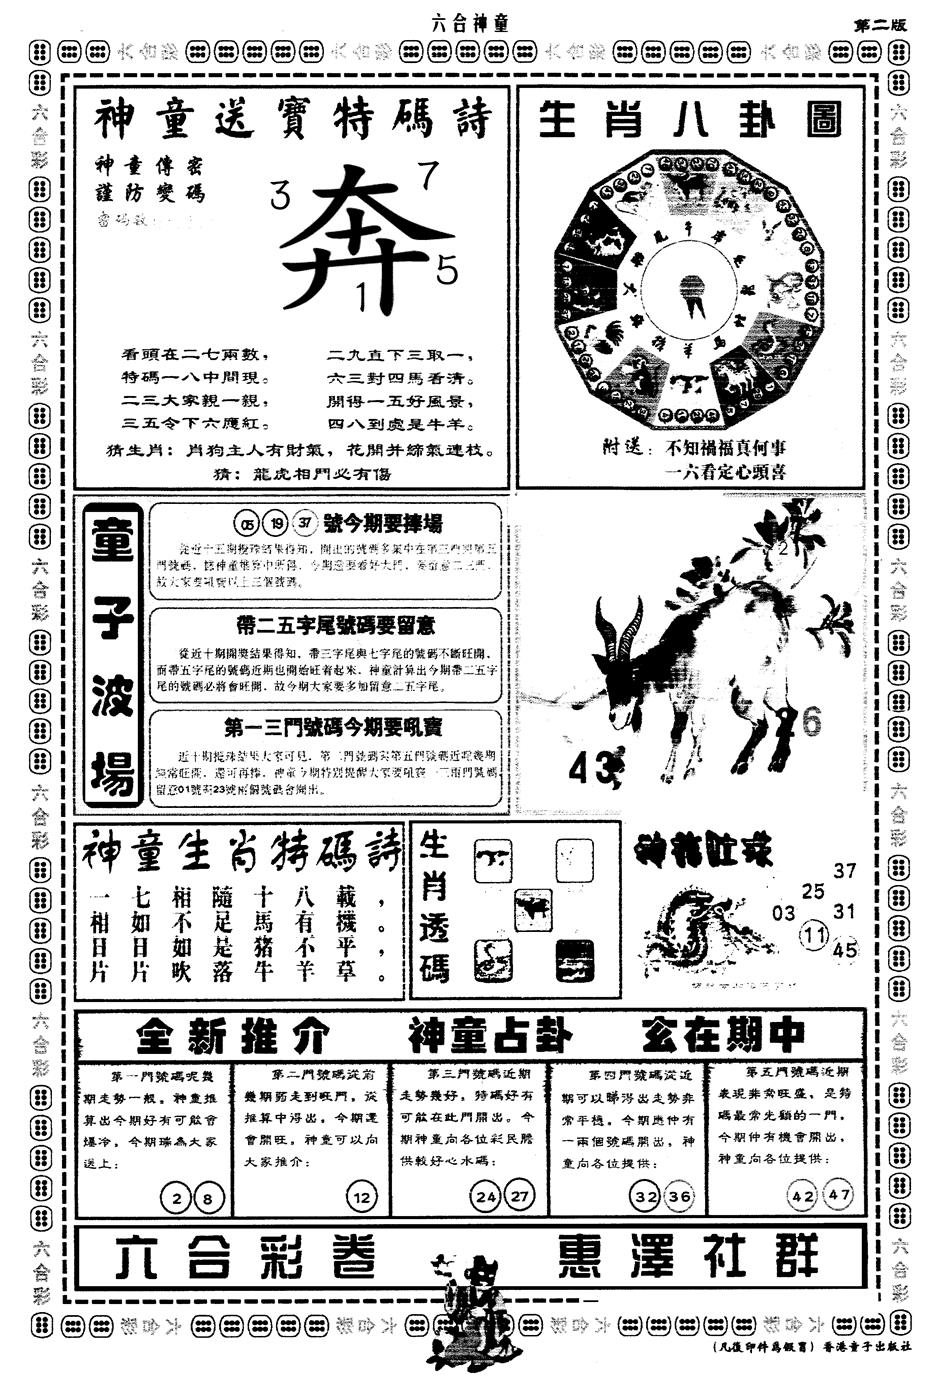 六合神童
第二版
神童送寶特碼詩
神童傳密
謹防變碼
3
7
奔
5
1
看頭在二七兩數，
二九直下三取一，
特碼一八中間現。
六三對四馬看清。
二三大家親一親，
開得一五好風景，
三五令下六應紅。
四八到處是牛羊。
猜生肖：肖狗主人有財氣，花開并締氣連枝。
猜：龍虎相鬥必有傷
生肖八卦圖
附送：不知禍福真何事
一六看定心頭喜
童子波場
05 19 37 號今期要捧場
從近十五期攪珠結果得知，開出的號碼多集中在第三門與第五
帶二五字尾號碼要留意
從近十期開獎結果得知，帶三字尾與七字尾的號碼不斷旺開，
而帶五字尾的號碼近期也開始旺肴起來，神童計算出今期帶二五字
尾的號碼必將會旺開，故今期大家要多加留意二五字尾。
第一三門號碼今期要吼實
留意01號與23號兩個號碼會開出。
43
26
神童生肖特碼詩
一七相隨十八載，
相如不足馬有機。
日日如是猪不平，
片片吹落牛羊草。
生肖透碼
神龍吐珠
37
25
03
31
11
45
全新推介 神童占卦 玄在期中
第一門號碼呢幾
期走勢一般，神童推
算出今期好有可能會
爆冷，今期臻為大家
送上：
2 8
第二門號碼從前
幾期弱走到旺門，從
推算中得出，今期還
會開旺，神童可以向
大家推介：
12
第三門號碼近期
走勢幾好，特碼好有
可能在此門開出。今
期神童向各位彩民膽
供較好心水碼：
24 27
第四門號碼從近
期可以睇得出走勢非
常平穩，今期應仲有
一兩個號碼開出，神
童向各位提供：
32 36
第五門號碼近期
表現非常旺盛，是特
碼最常先顧的一門，
今期仲有機會開出，
神童向各位提供：
42 47
六合彩卷 惠澤社群
（凡復印件為假冒）香港童子出版社